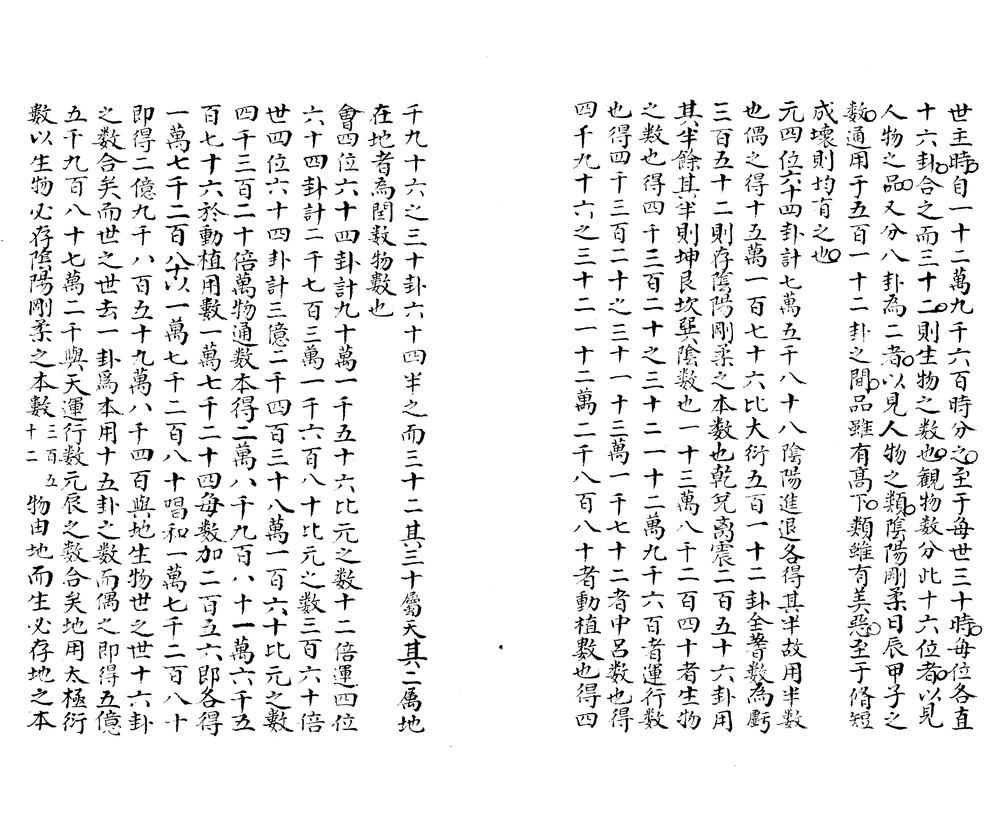 世主時自一十二萬九千六百時分之至于每世三十時每位各直
十六卦合之而三十二則生物之數也觀物數分此十六位者以見
人物之品又分八卦為二者以見人物之類陰陽剛柔日辰甲子之
數通用于五百一十二卦之間品雖有髙下類雖有美惡至于脩短
成壊則均有之也
元四位六十四卦計七萬五千八十八陰陽進退各得其半故用半數
也偶之得十五萬一百七十六比大衍五百一十二卦全蓍數為虧
三百五十二則存陰陽剛柔之本數也乾兌离震二百五十六卦用
其半餘其半則坤艮坎巽陰數也一十三萬八千二百四十者生物
之數也得四千三百二十之三十二一十二萬九千六百者運行數
也得四千三百二十之三十一十三萬一千七十二者中呂數也得
四千九十六之三十二一十二萬二千八百八十者動植數也得四
千九十六之三十卦六十四半之而三十二其三十屬天其二屬地
在地者為閏數物數也
會四位六十四卦計九十萬一千五十六比元之數十二倍運四位
六十四卦計二千七百三萬一千六百八十比元之數三百六十倍
世四位六十四卦計三億二千四百三十八萬一百六十比元之數
四千三百二十倍萬物通數本得二萬八千九百八十一萬六千五
百七十六於動植用數一萬七千二十四每數加二百五六即各得
一萬七千二百八十以一萬七千二百八十唱和一萬七千二百八十
即得二億九千八百五十九萬八千四百與地生物世之世十六卦
之數合矣而世之世去一卦爲本用十五卦之數而偶之即得五億
五千九百八十七萬二千與天運行數元辰之數合矣地用太極衍
數以生物必存陰陽剛柔之本數三百五十二物由地而生必存地之本